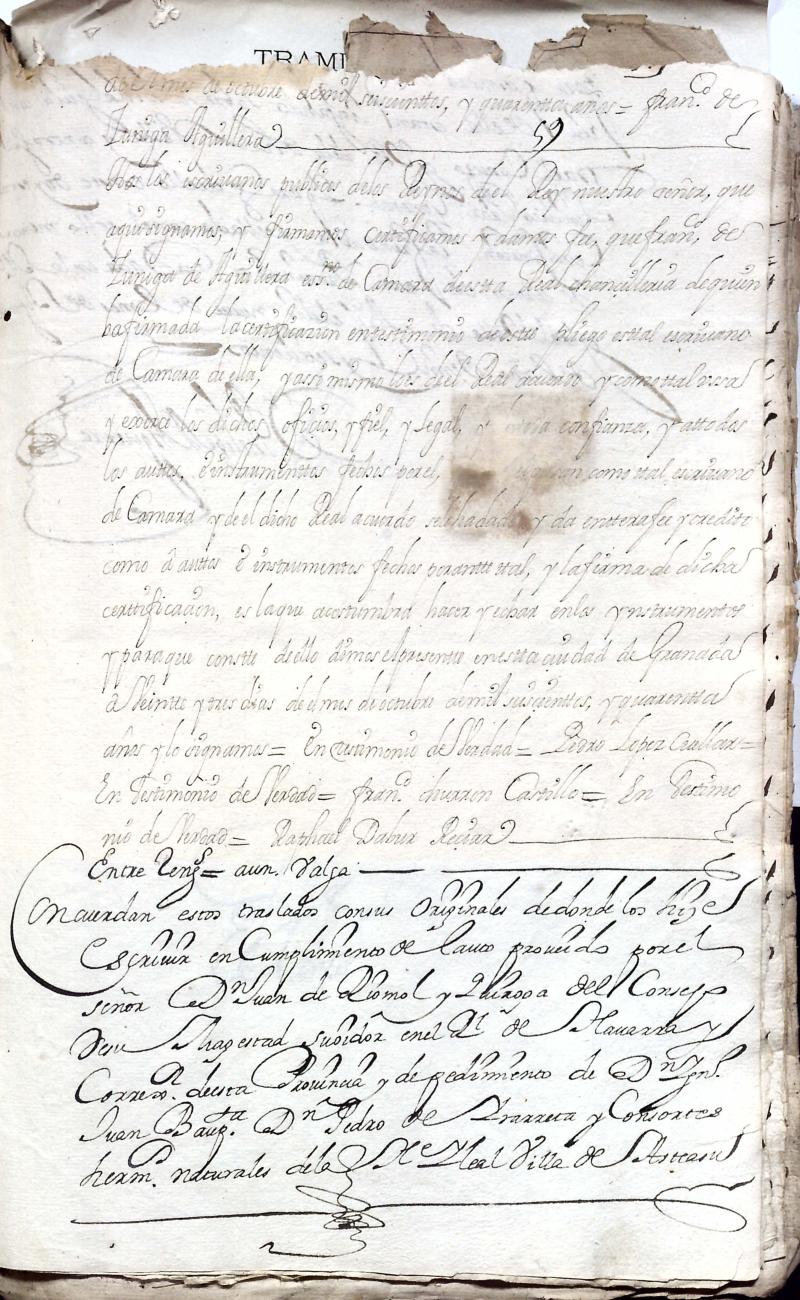 TRAMI
del mes de octubre demil seiscienttos, y quarentta años = fran.co de
Zuniga Aguillera
59
Nos los escrivanos publicos delos Reynos de el Rey nuestro señor, que
aqui signamos, y firmamos certificamos y damos fee, que fran.co de
Zuniga de Aguillera ess.no de Camara de estta Real chancilleria de quien
ba firmada la certificazion en testimonio de este pliego es tal escrivano
de Camara de ella, y assimismo lo es de el Real acuerdo y como ttal ussa
y exerce los dichos oficios, y fiel, y legal, y confianza, y a ttodos
los auttos, e instrumenttos fechos por el, como ttal escrivano
de Camara y de el dicho Real acuerdo se le ha dado y da entera fee y credito
como a auttos e instrumentos fechos por ante ttal, y la firma de dicha
certtificacion, es la que acostumbra hacer y echar en los ynstrumentos
y para que constte dello dimos el presentte en estta ciudad de Granada
a Veintte y tres dias de el mes de octubre de mil seiscienttos, y quarentta
años y lo signamos = En testimonio de Verdad = Pedro Lopez =
En Testimonio de Verdad = fran.co churron Castillo = En Testimo
nio de Verdad = Raphael
Entre Reng.s = aun. Valga
Concuerdan estos traslados con sus Originales de donde los hize
Escrivir en Cumplimiento de l auto proveido por el
señor D.n Juan de y Quiroga del Consejo
de su Magestad su oidor en el R.l de Navarra y
Correx.or de esta Provincia y de pedimiento de D.n Ign.o
Juan Baup.ta D.n Pedro de Ybarreta y Consortes
herm.s naturales de la N. e Leal Villa de Asteasu